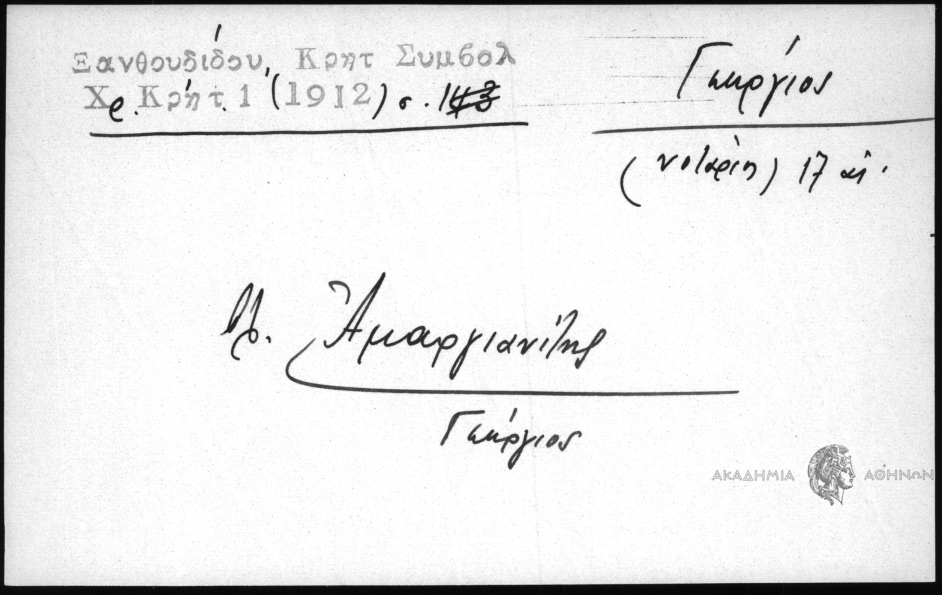 Ξανθουδίδου, Κρητ Συμβολ
Χρ. Κρήτ. 1 (1912) σ.
Γεώργιος
(νοτάρης) 17 αἰ.
βλ. Ἀμαργιανίτης
Γεώργιος
ΑΚΑΔΗΜΙΑ ΑΘΗΝΩΝ